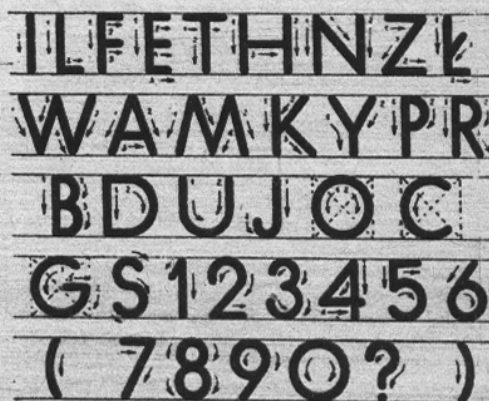 I L F E T H N Z Ł
W A M K Y P R
B D U J O C
G S 1 2 3 4 5 6
( 7 8 9 0 ? )